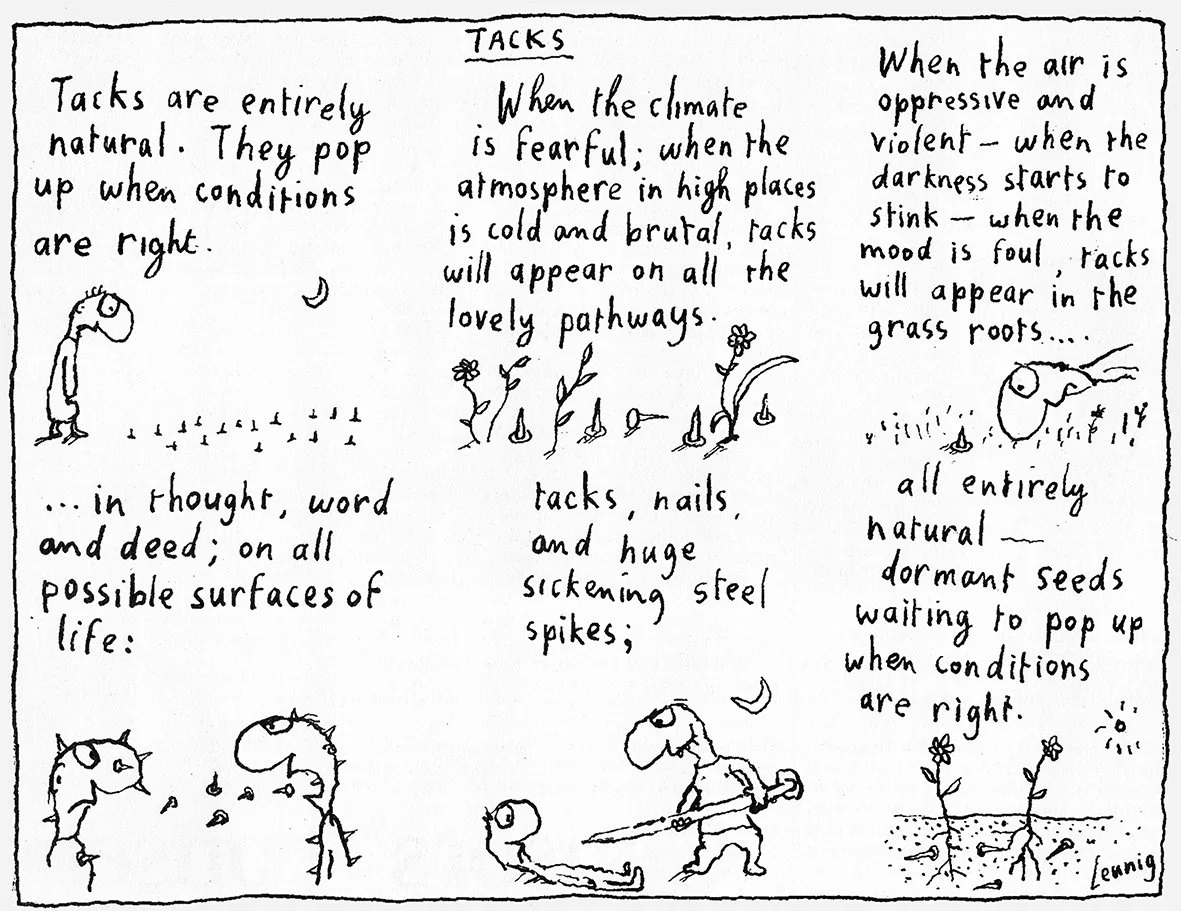 TACKS
Tacks are entirely
natural. They pop
up when conditions
are right.
When the climate
is fearful; when the
atmosphere in high places
is cold and brutal, tacks
will appear on all the
lovely pathways.
When the air is
oppressive and
violent — when the
darkness starts to
stink — when the
mood is foul, tacks
will appear in the
grass roots....
... in thought, word
and deed; on all
possible surfaces of
life:
tacks, nails,
and huge
sickening steel
spikes;
all entirely
natural —
dormant seeds
waiting to pop up
when conditions
are right.
Leunig